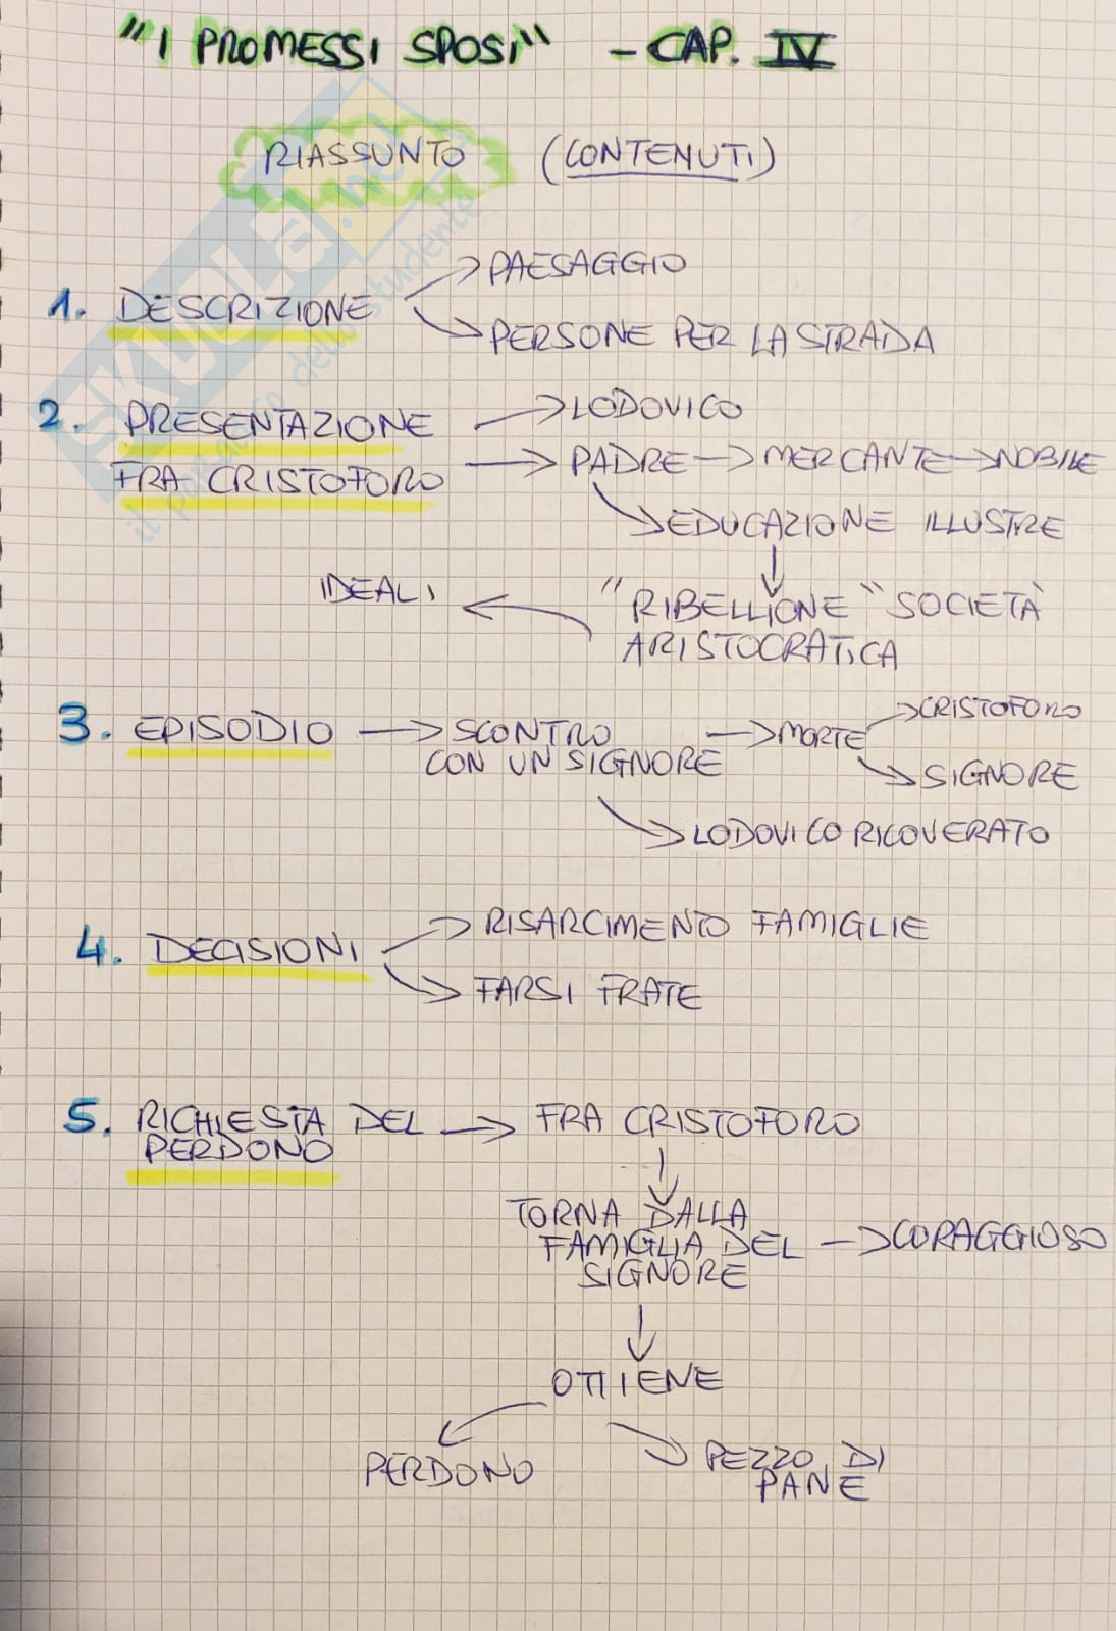 "I PROMESSI SPOSI" - CAP. IV
RIASSUNTO (CONTENUTI)
1. DESCRIZIONE → PAESAGGIO
→ PERSONE PER LA STRADA
2. PRESENTAZIONE FRA CRISTOFORO → LODOVICO
→ PADRE → MERCANTE → NOBILE
→ EDUCAZIONE ILLUSTRE
↓
"RIBELLIONE" SOCIETÀ
ARISTOCRATICA
← IDEALI
3. EPISODIO → SCONTRO
CON UN SIGNORE
→ MORTE → CRISTOFORO
→ SIGNORE
→ LODOVICO RICOVERATO
4. DECISIONI → RISARCIMENTO FAMIGLIE
→ FARSI FRATE
5. RICHIESTA DEL
PERDONO
→ FRA CRISTOFORO
↓
TORNA DALLA
FAMIGLIA DEL
SIGNORE
→ CORAGGIOSO
↓
OTTIENE
PERDONO
PEZZO DI
PANE
SKUOLA.net